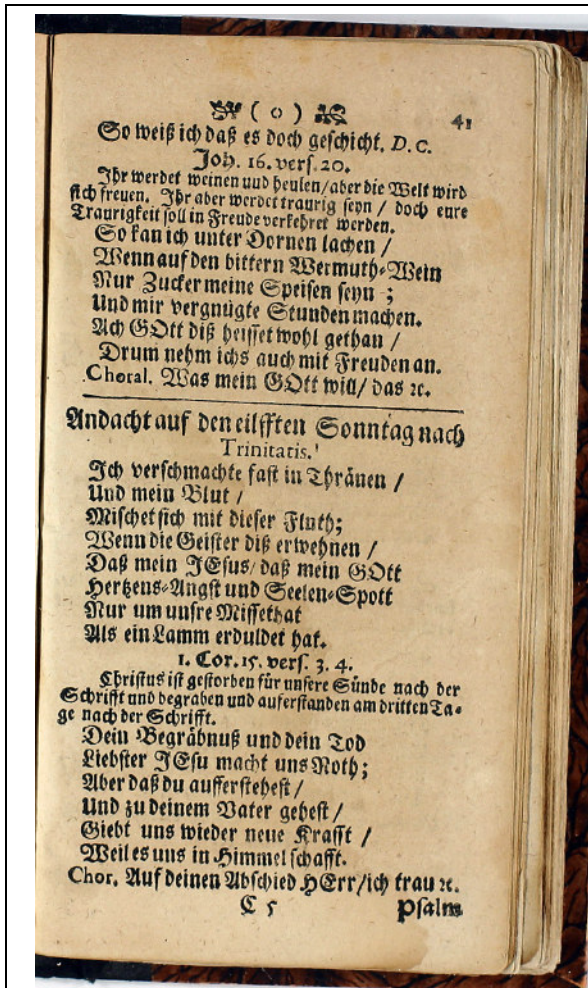 ( o ) 41
So weiß ich daß es doch geschicht. D. C.
Joh. 16. vers. 20.
Ihr werdet weinen uud heulen/aber die Welt wird
sich freuen. Ihr aber werdet traurig seyn / doch eure
Traurigkeit soll in Freude verkehret werden.
So kan ich unter Dornen lachen /
Wenn auf den bittern Wermuth-Wein
Nur Zucker meine Speisen seyn ;
Und mir vergnügte Stunden machen.
Ach GOtt diß heisset wohl gethan /
Drum nehm ichs auch mit Freuden an.
Choral. Was mein GOtt will/ das ꝛc.
Andacht auf den eilfften Sonntag nach
Trinitatis.
Ich verschmachte fast in Thränen /
Und mein Blut /
Mischet sich mit dieser Fluth;
Wenn die Geister diß erwehnen /
Daß mein JEsus/ daß mein GOtt
Hertzens-Angst und Seelen-Spott
Nur um unsre Missethat
Als ein Lamm erduldet hat.
1. Cor. 15. vers. 3. 4.
Christus ist gestorben für unsere Sünde nach der
Schrifft und begraben und auferstanden am dritten Ta-
ge nach der Schrifft.
Dein Begräbnuß und dein Tod
Liebster JEsu macht uns Noth;
Aber daß du aufferstehest /
Und zu deinem Vater gehest /
Giebt uns wieder neue Krafft /
Weil es uns in Himmel schafft.
Chor. Auf deinen Abschied HErr/ich trau ꝛc.
C 5 Psalm